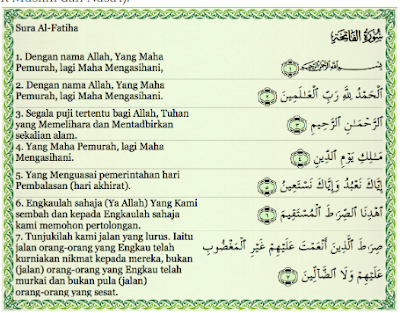 k Muslim dan Nasa'i).
Sura Al-Fatiha
سُورَةُ الفَاتِحَةِ
1. Dengan nama Allah, Yang Maha
Pemurah, lagi Maha Mengasihani,
بِسْمِ اللَّهِ الرَّحْمَٰنِ الرَّحِيمِ ١
2. Dengan nama Allah, Yang Maha
Pemurah, lagi Maha Mengasihani.
الْحَمْدُ لِلَّهِ رَبِّ الْعَٰلَمِينَ ٢
3. Segala puji tertentu bagi Allah, Tuhan
yang Memelihara dan Mentadbirkan
sekalian alam.
الرَّحْمَٰنِ الرَّحِيمِ ٣
4. Yang Maha Pemurah, lagi Maha
Mengasihani.
مَٰلِكِ يَوْمِ الدِّينِ ٤
5. Yang Menguasai pemerintahan hari
Pembalasan (hari akhirat).
إِيَّاكَ نَعْبُدُ وَإِيَّاكَ نَسْتَعِينُ ٥
6. Engkaulah sahaja (Ya Allah) Yang Kami
sembah dan kepada Engkaulah sahaja
kami memohon pertolongan.
اهْدِنَا الصِّرَٰطَ الْمُسْتَقِيمَ ٦
7. Tunjukilah kami jalan yang lurus. Iaitu
jalan orang-orang yang Engkau telah
kurniakan nikmat kepada mereka, bukan
(jalan) orang-orang yang Engkau telah
murkai dan bukan pula (jalan)
orang-orang yang sesat.
صِرَٰطَ الَّذِينَ أَنْعَمْتَ عَلَيْهِمْ غَيْرِ الْمَغْضُوبِ
عَلَيْهِمْ وَلَا الضَّالِّينَ ٧